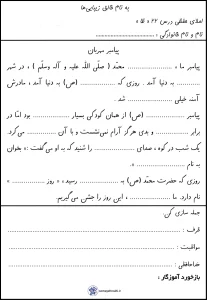 به نام خالق زیبایی‌ها
املای خلاقی درس ۲۲ « ق »
نام و نام خانوادگی: ..............................
پیامبر مهربان
پیامبر ما ، .................. محمّد ( صلّی اللّه علیه و آله وسلّم ) ، در شهر
.................. به دنیا آمد . روزی که .................. (ص) به دنیا آمد ، مادرش
آمنه خیلی .................. شد .
پیامبر .................. (ص) از همان کودکی بسیار .................. بود امّا در
برابر .................. و بدی هرگز آرام نمی‌نشست و با آن .................. می‌کرد.
یک شب در کوه ، صدای .................. را شنید که به او می‌گفت :« بخوان
به نام .................. ».
روزی که حضرت محمّد (ص) به .................. رسید، « روز .................. »
نام دارد. ما .................. ، این روز را جشن می‌گیریم.
جمله سازی کن:
ظرف :
مواظبت :
خداحافظی :
بازخورد آموزگار :